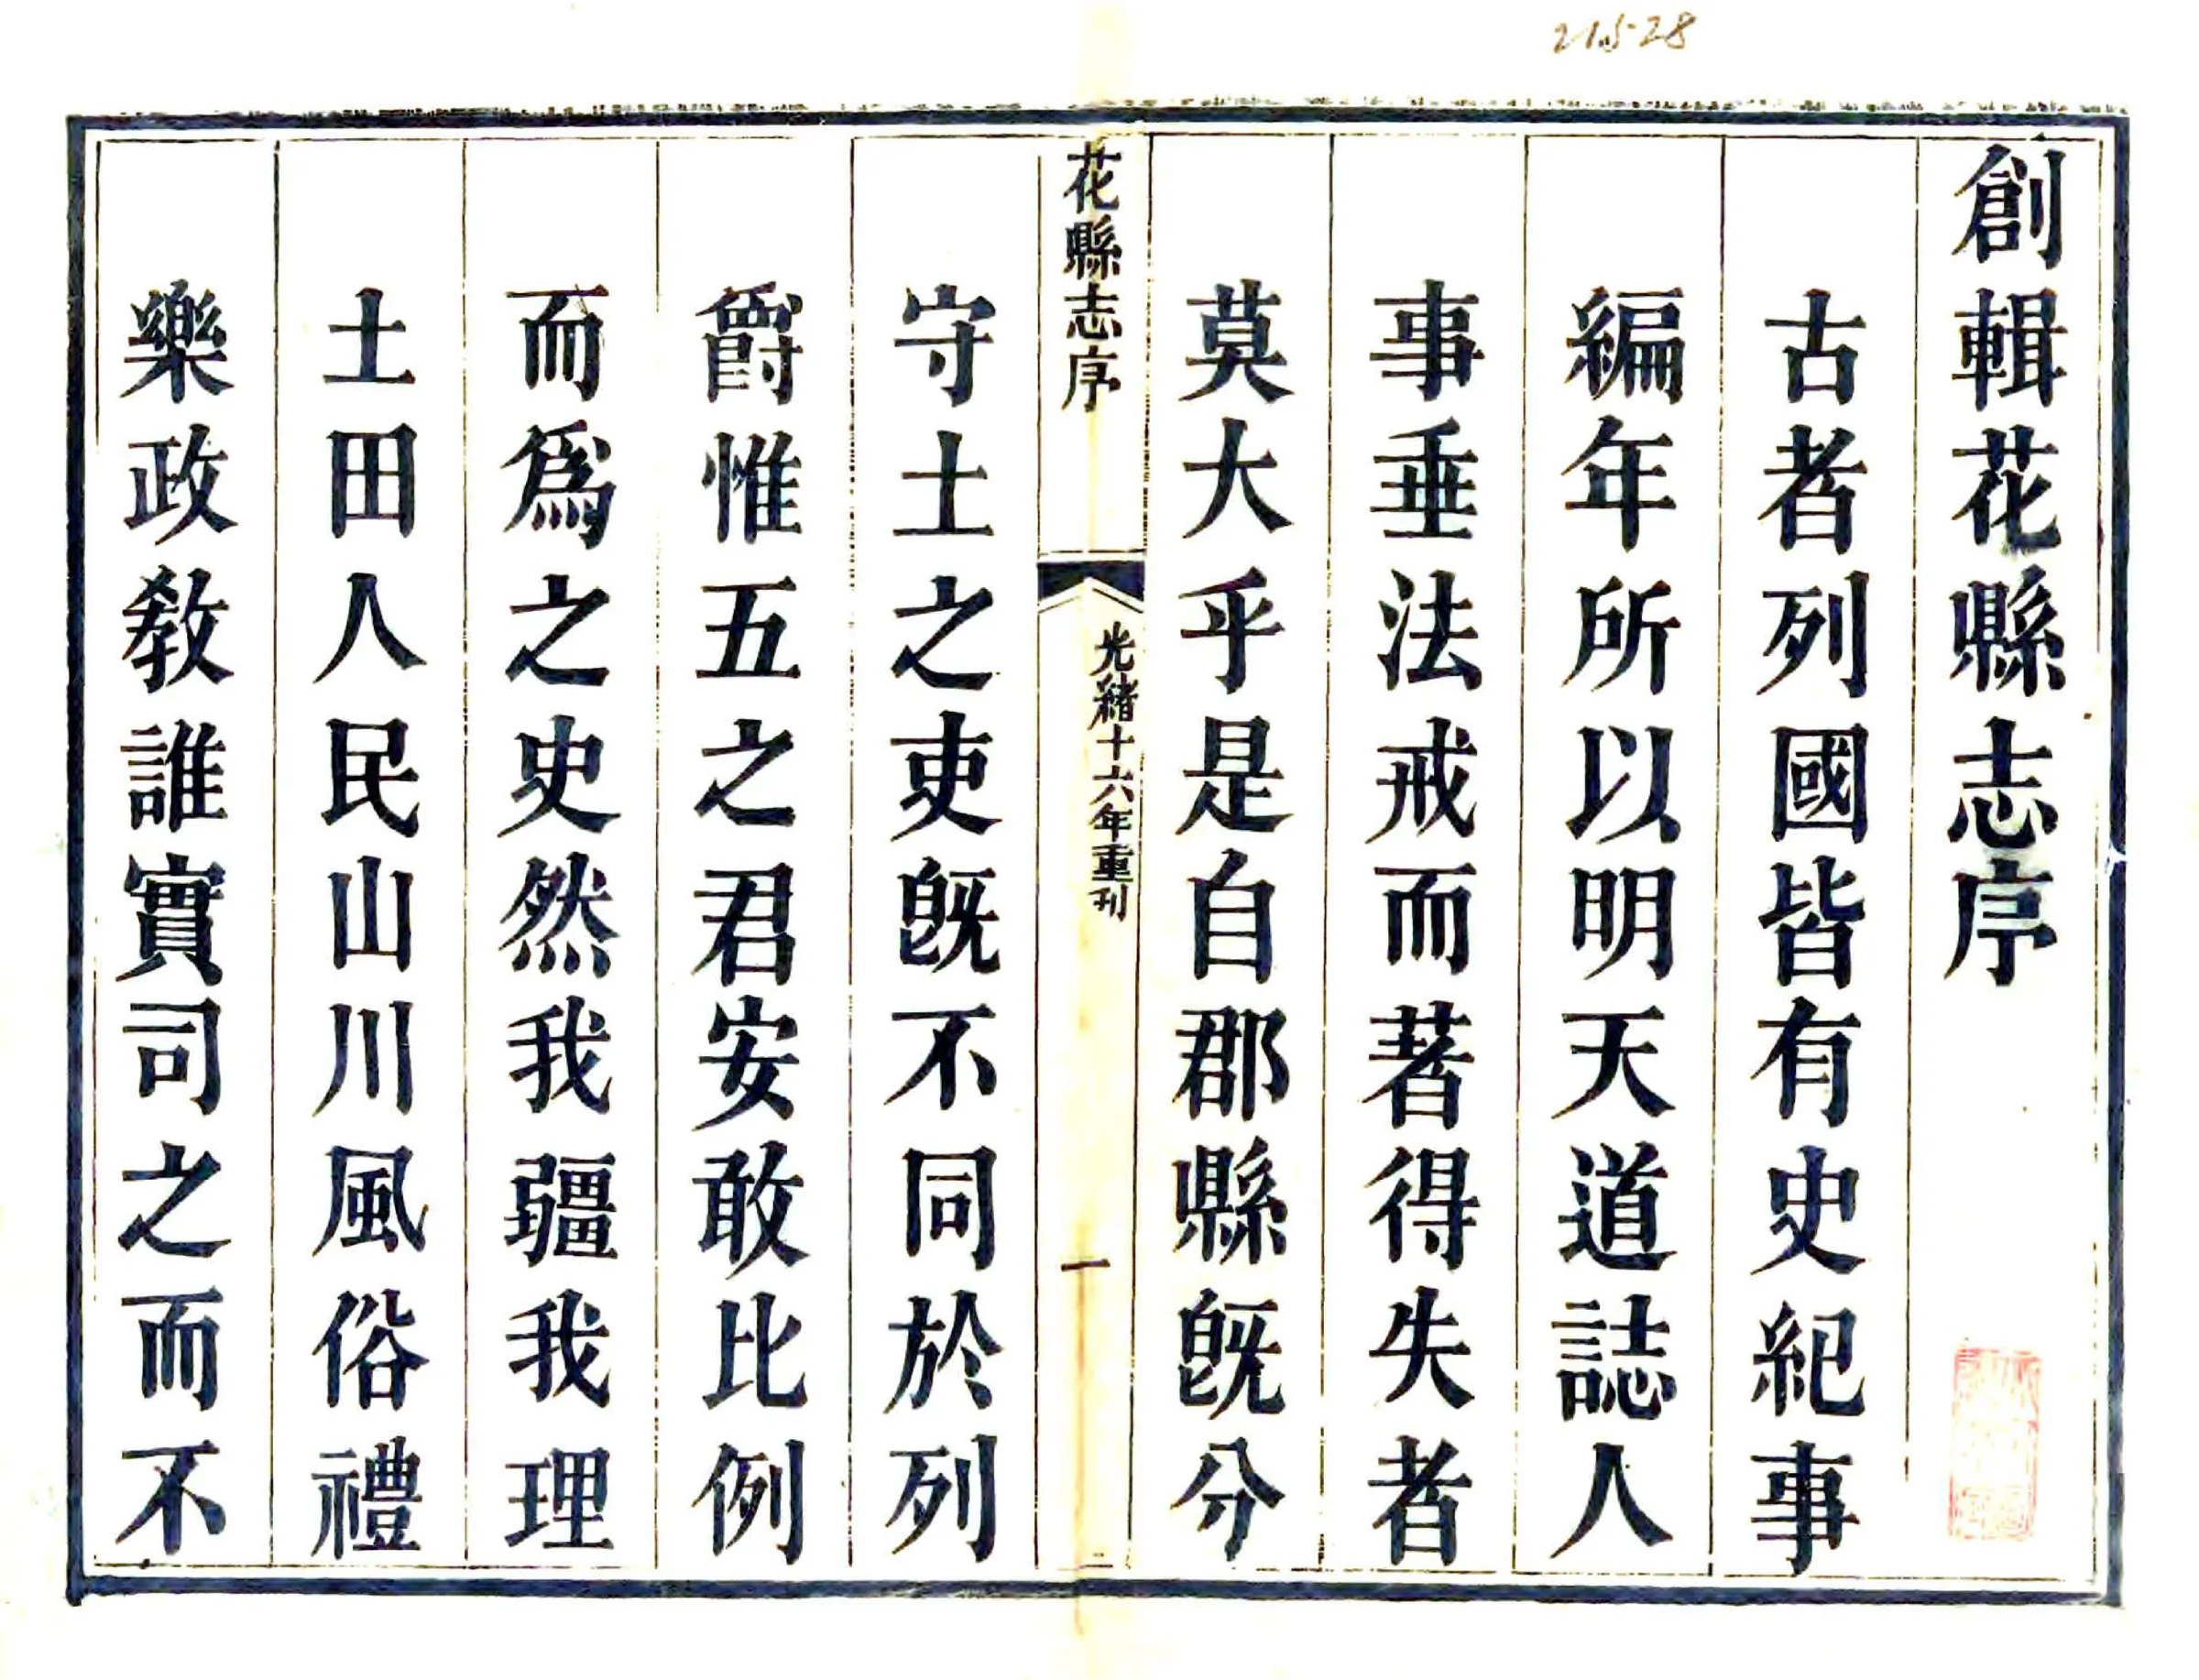 21528
創輯花縣志序
古者列國皆有史紀事
編年所以明天道誌人
事垂法戒而著得失者
莫大乎是自郡縣旣分
花縣志序
光緒十六年重刊
一
守土之吏旣不同於列
爵惟五之君安敢比例
而爲之史然我疆我理
土田人民山川風俗禮
樂政教誰實司之而不